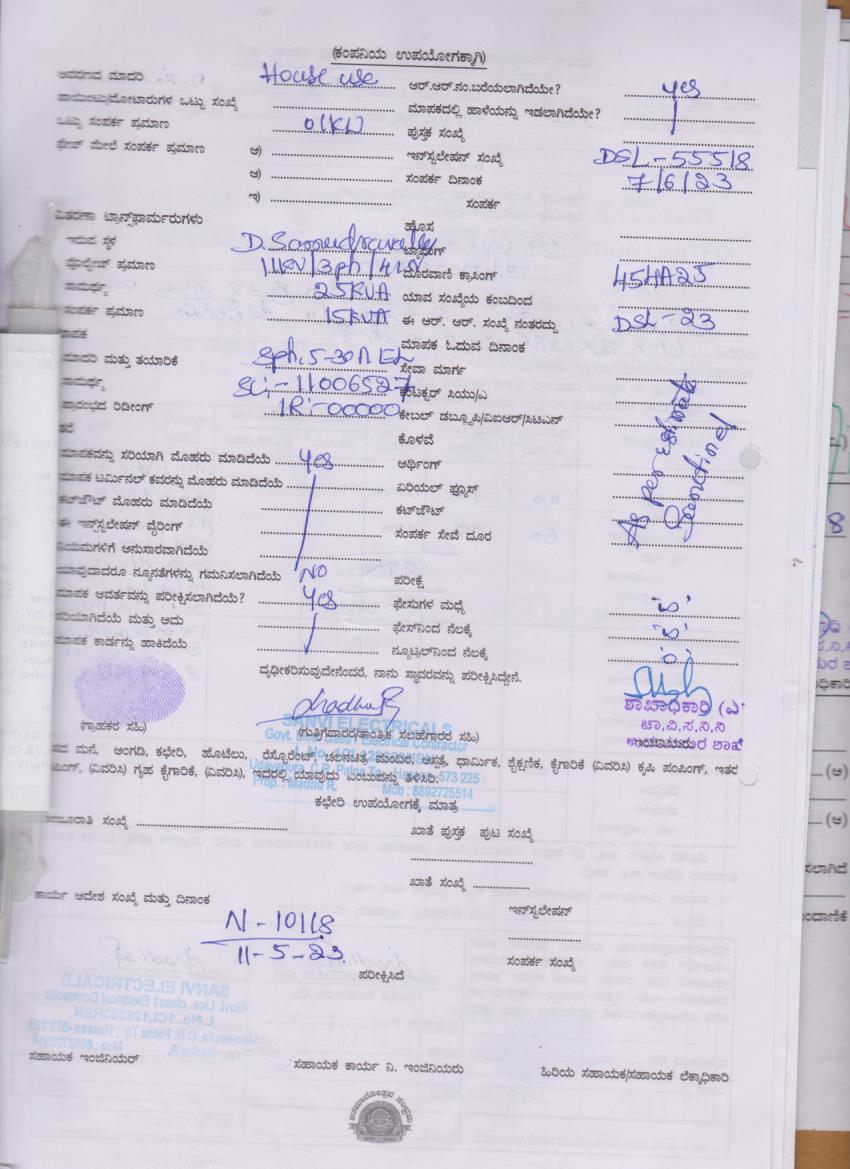 (ಕಂಪನಿಯ ಉಪಯೋಗಕ್ಕಾಗಿ)
ಮಾದರಿ House use ಆರ್.ಆರ್.ನಂ.ಬರೆಯಲಾಗಿದೆಯೇ? yes
ಒಟ್ಟು ಸಂಖ್ಯೆ ಮಾಪಕದಲ್ಲಿ ಹಾಳೆಯನ್ನು ಇಡಲಾಗಿದೆಯೇ?
ಒಟ್ಟು ಸಂಪರ್ಕ ಪ್ರಮಾಣ 01KW ಪುಸ್ತಕ ಸಂಖ್ಯೆ
ಮೇಲೆ ಸಂಪರ್ಕ ಪ್ರಮಾಣ ಅ) ಇನ್‌ಸ್ಟಲೇಷನ್ ಸಂಖ್ಯೆ DSL-55518
ಆ) ಸಂಪರ್ಕ ದಿನಾಂಕ 7/6/23
ಇ) ಸಂಪರ್ಕ
ಟ್ರಾನ್ಸ್‌ಫಾರ್ಮರುಗಳು ಹೊಸ
ಇರುವ ಸ್ಥಳ D. ಟ್ಯಾಪಿಂಗ್
ಪ್ರಮಾಣ 11KV/3ph/ ದೂರವಾಣಿ ಕ್ರಾಸಿಂಗ್ 45HA25
25KVA ಯಾವ ಸಂಖ್ಯೆಯ ಕಂಬದಿಂದ
ಸಂಪರ್ಕ ಪ್ರಮಾಣ 15KVA ಈ ಆರ್. ಆರ್. ಸಂಖ್ಯೆ ನಂತರದ್ದು DSL-23
ಮಾಪಕ ಓದುವ ದಿನಾಂಕ
ಮಾದರಿ ಮತ್ತು ತಯಾರಿಕೆ ಸೇವಾ ಮಾರ್ಗ
SL:-11006527 ಕಂಟಕ್ಟರ್ ಸಿಯು/ಎ
ರಿಡೀಂಗ್ IR:-00000 ಕೇಬಲ್ ಡಬ್ಲ್ಯೂಪಿ/ವಿಐಆರ್/ಸಿಟಿಎನ್
ಕೊಳವೆ
ಮಾಪಕವನ್ನು ಸರಿಯಾಗಿ ಮೊಹರು ಮಾಡಿದೆಯೆ yes ಆರ್ಥಿಂಗ್
ಮಾಪಕ ಟರ್ಮಿನಲ್ ಕವರನ್ನು ಮೊಹರು ಮಾಡಿದೆಯೆ ಏರಿಯಲ್ ಫ್ಯೂಸ್
ಕಟ್‌ಔಟ್ ಮೊಹರು ಮಾಡಿದೆಯೆ ಕಟ್‌ಔಟ್
ಈ ಇನ್‌ಸ್ಟಲೇಷನ್ ವೈರಿಂಗ್ ಸಂಪರ್ಕ ಸೇವೆ ದೂರ
As per estimate
Sanctioned
ನಿಯಮಗಳಿಗೆ ಅನುಸಾರವಾಗಿದೆಯೆ
ಯಾವುದಾದರೂ ನ್ಯೂನತೆಗಳನ್ನು ಗಮನಿಸಲಾಗಿದೆಯೆ NO ಪರೀಕ್ಷೆ
ಮಾಪಕ ಆವರ್ತವನ್ನು ಪರೀಕ್ಷಿಸಲಾಗಿದೆಯೆ? yes ಫೇಸುಗಳ ಮಧ್ಯೆ
ಸರಿಯಾಗಿದೆಯೆ ಮತ್ತು ಅದು ಫೇಸ್‌ನಿಂದ ನೆಲಕ್ಕೆ
ಮಾಪಕ ಕಾರ್ಡನ್ನು ಹಾಕಿದೆಯೆ ನ್ಯೂಟ್ರಲ್‌ನಿಂದ ನೆಲಕ್ಕೆ
ದೃಢೀಕರಿಸುವುದೇನೆಂದರೆ, ನಾನು ಸ್ಥಾವರವನ್ನು ಪರೀಕ್ಷಿಸಿದ್ದೇನೆ.
ಶಾಖಾಧಿಕಾರಿ (ಎ
(ಗ್ರಾಹಕರ ಸಹಿ) (ಗುತ್ತಿಗೆದಾರರ/ತಾಂತ್ರಿಕ ಸಲಹೆಗಾರರ ಸಹಿ) ಚಾ.ವಿ.ಸ.ನಿ.ನಿ
SANVI ELECTRICALS
Electrical Contractor
573 225
Prop. : Madhu R. Mob : 8892725514
ಮನೆ, ಅಂಗಡಿ, ಕಛೇರಿ, ಹೊಟೆಲು, ರೆಸ್ಟೊರೆಂಟ್ ಚಲನಚಿತ್ರ ಮಂದಿರ, ಆಸ್ಪತ್ರೆ, ಧಾರ್ಮಿಕ, ಶೈಕ್ಷಣಿಕ, ಕೈಗಾರಿಕೆ (ವಿವರಿಸಿ) ಕೃಷಿ ಪಂಪಿಂಗ್, ಇತರ
(ವಿವರಿಸಿ) ಗೃಹ ಕೈಗಾರಿಕೆ, (ವಿವರಿಸಿ), ಇದರಲ್ಲಿ ಯಾವುದು ಎಂಬುದನ್ನು ತಿಳಿಸಿರಿ.
ಕಛೇರಿ ಉಪಯೋಗಕ್ಕೆ ಮಾತ್ರ
ಸಂಖ್ಯೆ ಖಾತೆ ಪುಸ್ತಕ ಪುಟ ಸಂಖ್ಯೆ
ಖಾತೆ ಸಂಖ್ಯೆ
ಕಾರ್ಯ ಆದೇಶ ಸಂಖ್ಯೆ ಮತ್ತು ದಿನಾಂಕ ಇನ್‌ಸ್ಟಲೇಷನ್
N-10118
11-5-23 ಸಂಪರ್ಕ ಸಂಖ್ಯೆ
ಪರೀಕ್ಷಿಸಿದೆ
ಸಹಾಯಕ ಇಂಜಿನಿಯರ್ ಸಹಾಯಕ ಕಾರ್ಯ ನಿ. ಇಂಜಿನಿಯರು ಹಿರಿಯ ಸಹಾಯಕ/ಸಹಾಯಕ ಲೆಕ್ಕಾಧಿಕಾರಿ